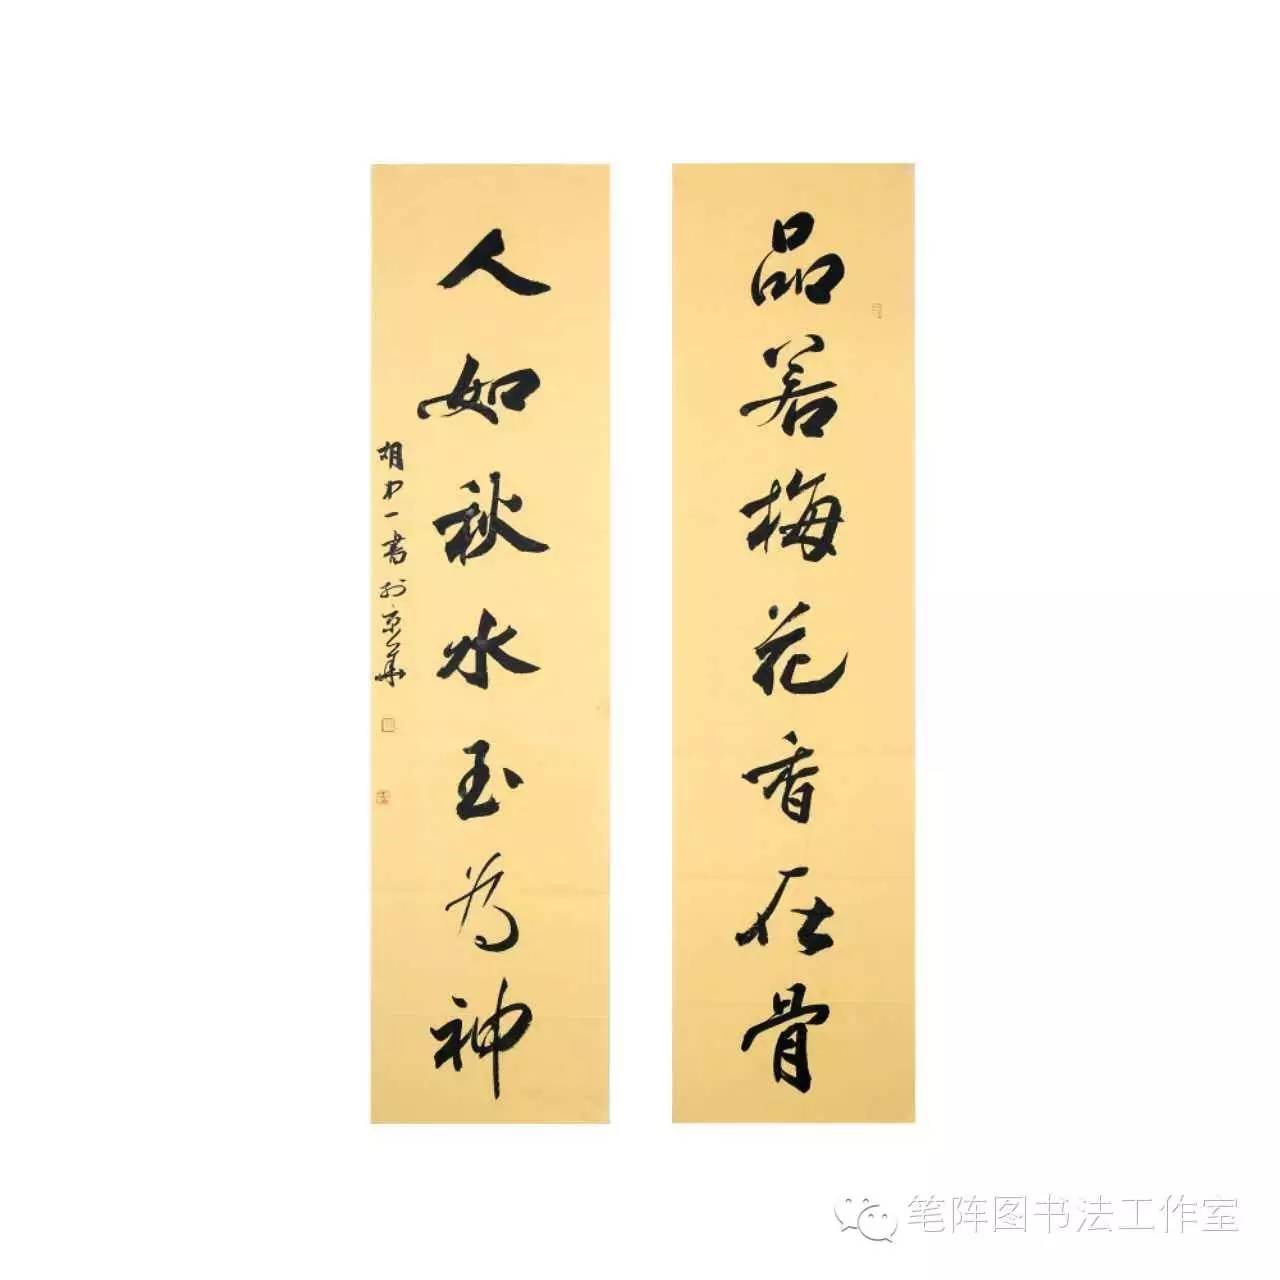 品若梅花香在骨
人如秋水玉为神
胡中一书于京華
笔阵图书法工作室